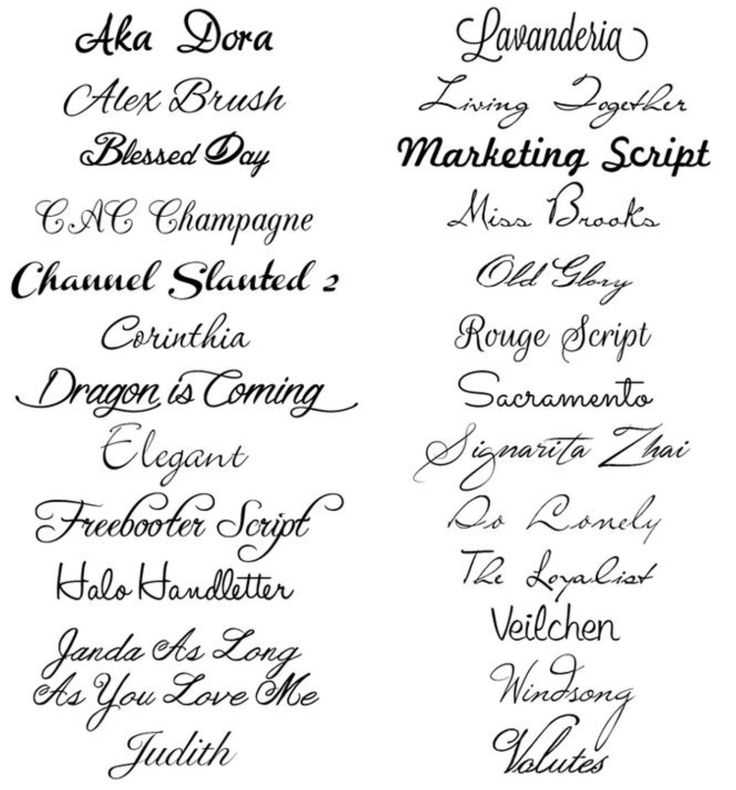 Aka Dora
Alex Brush
Blessed Day
CAC Champagne
Channel Slanted 2
Corinthia
Dragon is Coming
Elegant
Freebooter Script
Halo Handletter
Janda As Long
As You Love Me
Judith
Lavanderia
Living Together
Marketing Script
Miss Brooks
Old Glory
Rouge Script
Sacramento
Signarita Zhai
So Lonely
The Loyalist
Veilchen
Windsong
Volutes